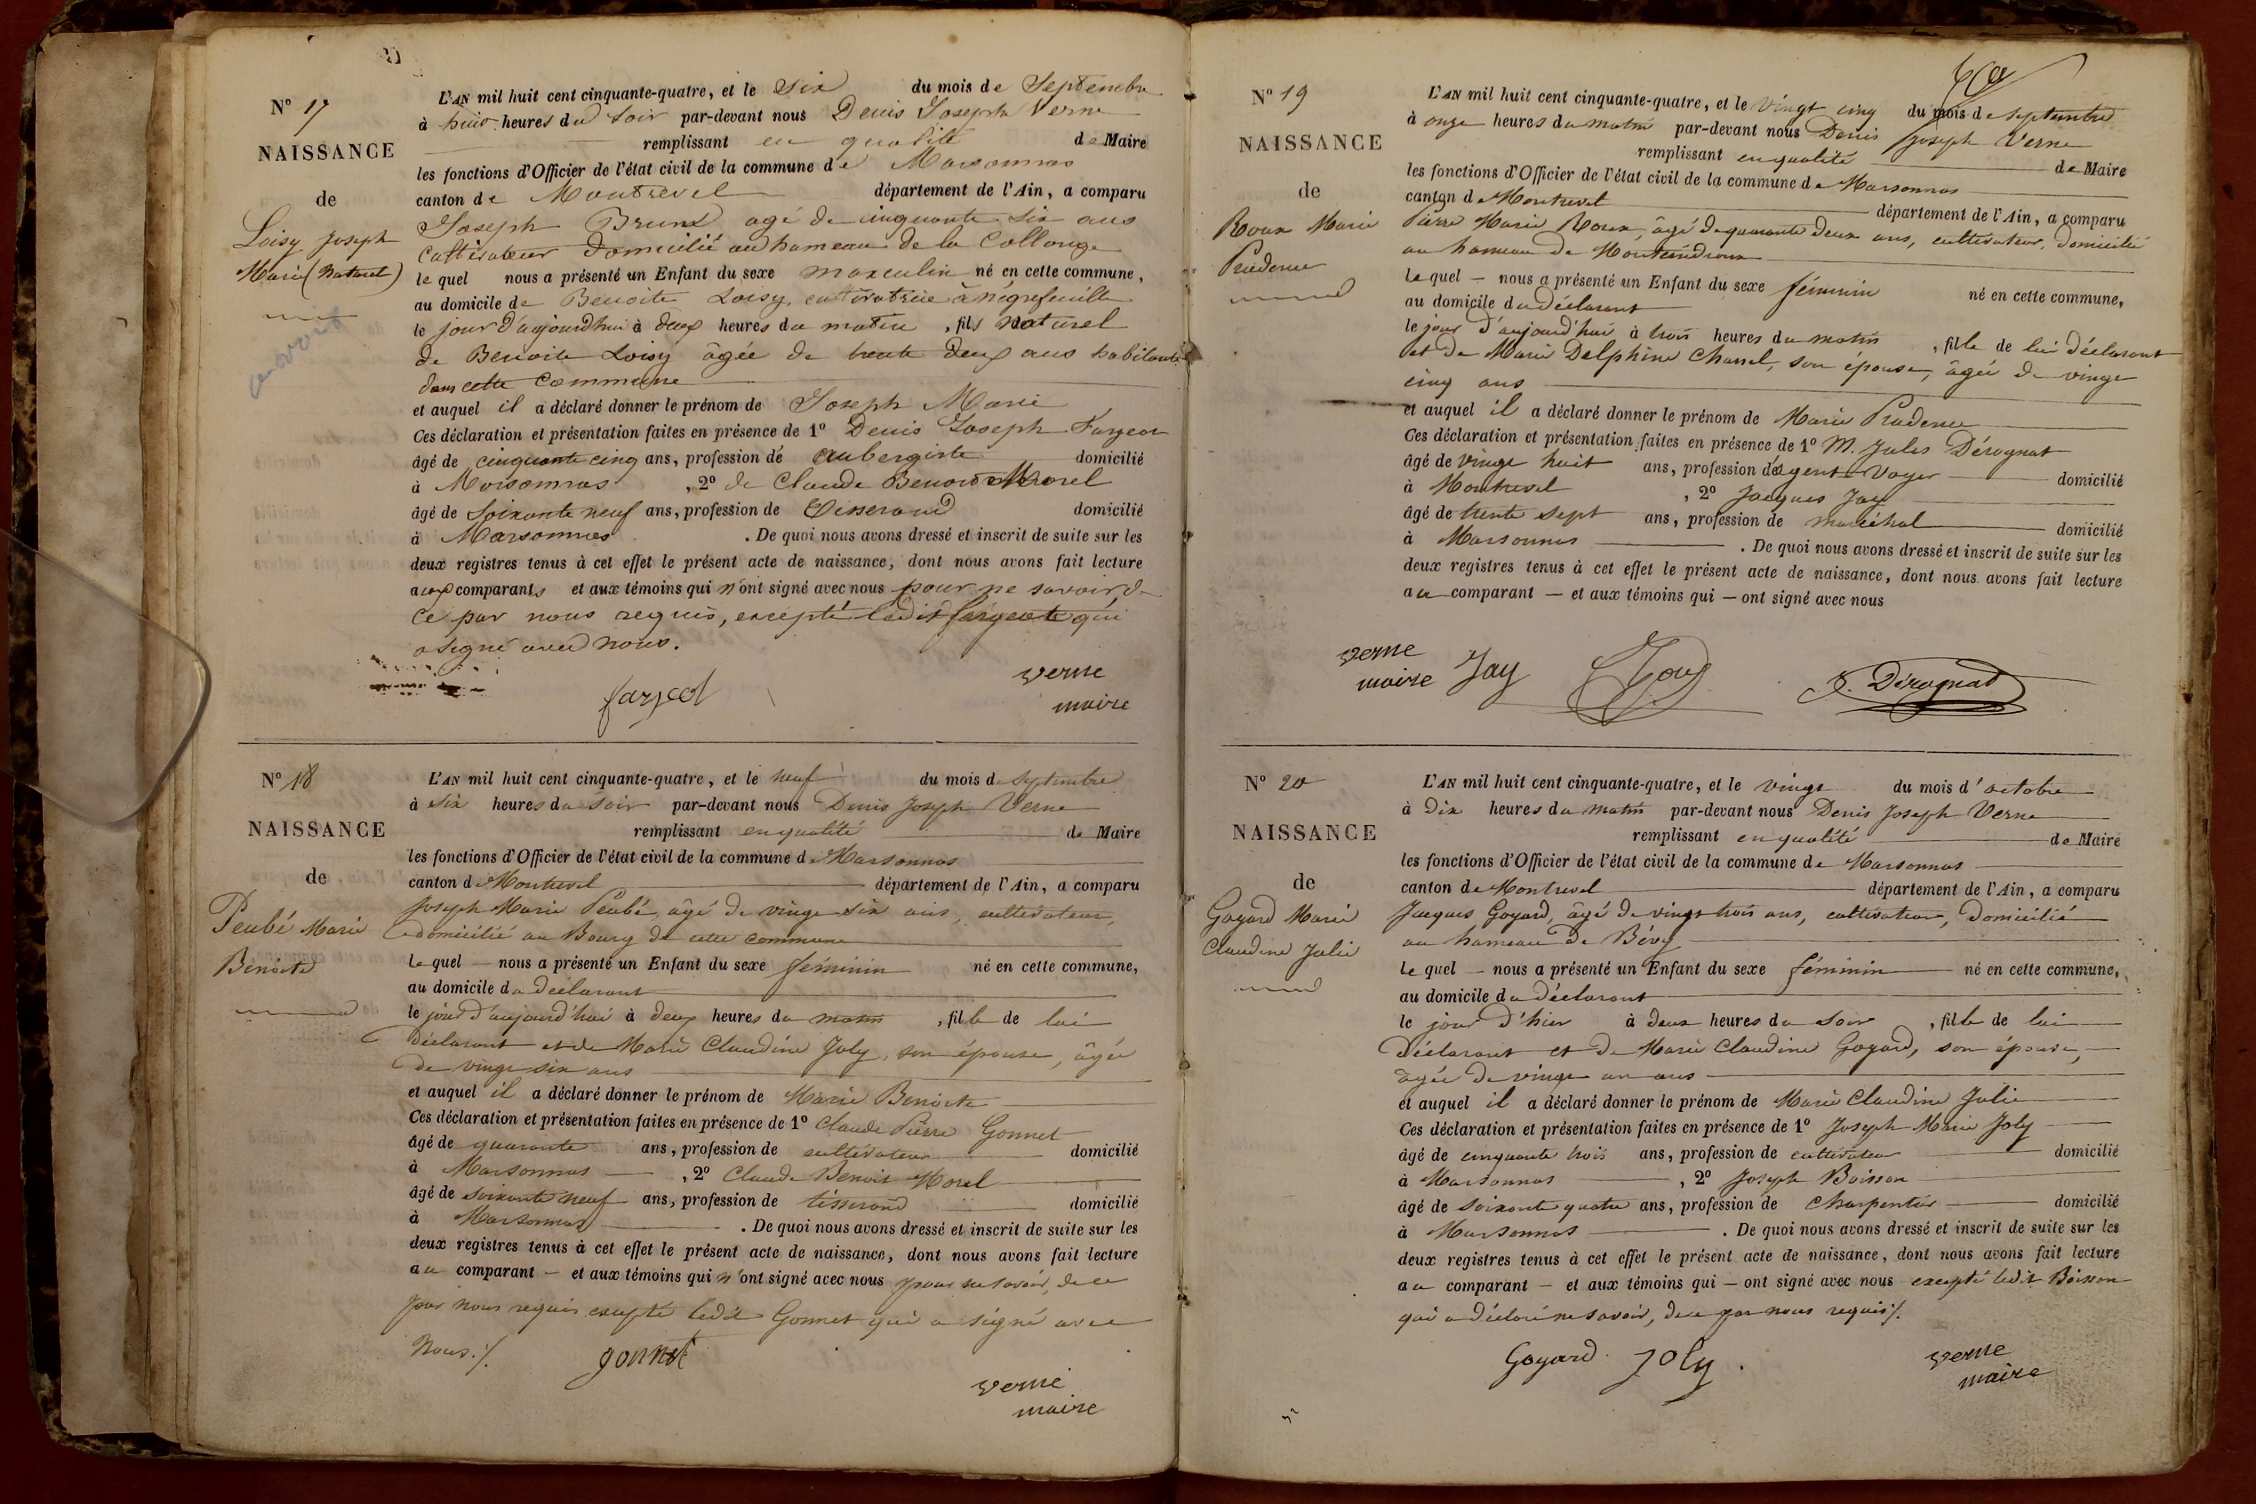 Nº 17
NAISSANCE
de
Loisy Joseph
Marie (Naturel)
L'AN mil huit cent cinquante-quatre, et le Six du mois de Septembre
à huit heures du Soir par-devant nous Denis Joseph Verne
remplissant en qualité de Maire
les fonctions d'Officier de l'état civil de la commune de Marsonnas
canton de Montrevel département de l'Ain, a comparu
Joseph Brund agé de cinquante six ans
Cultivateur Domicilié au hameau de la Collonge
le quel nous a présenté un Enfant du sexe masculin né en cette commune,
au domicile de Benoite Loisy, cultivatrice à négrefeuille
le jour d'aujourdhui à deux heures du matin, fils naturel
de Benoite Loisy âgée de trente deux ans habitante
dans cette Commune
et auquel il a déclaré donner le prénom de Joseph Marie
Ces déclaration et présentation faites en présence de 1º Denis Joseph Fargeot
âgé de cinquante cinq ans, profession de aubergiste domicilié
à Marsonnas, 2º de Claude Benoit Morel
âgé de Soixante neuf ans, profession de Tisserand domicilié
à Marsonnas. De quoi nous avons dressé et inscrit de suite sur les
deux registres tenus à cet effet le présent acte de naissance, dont nous avons fait lecture
aux comparants et aux témoins qui n'ont signé avec nous pour ne savoir, de
ce par nous requis, excepté ledit fargeot qui
a signé avec nous.
fargeot
verne
maire
Nº 18
NAISSANCE
de
Peubé Marie
Benoite
L'AN mil huit cent cinquante-quatre, et le neuf du mois de Septembre
à six heures du soir par-devant nous Denis Joseph Verne
remplissant en qualité de Maire
les fonctions d'Officier de l'état civil de la commune de Marsonnas
canton de Montrevel département de l'Ain, a comparu
Joseph Marie Peubé, âgé de vingt six ans, cultivateur,
domicilié au Bourg de cette commune
le quel — nous a présenté un Enfant du sexe féminin né en cette commune,
au domicile du déclarant
le jour d'aujourd'hui à deux heures du matin, fille de lui
déclarant et de Marie Claudine Joly, son épouse, âgée
de vingt six ans
et auquel il a déclaré donner le prénom de Marie Benoite
Ces déclaration et présentation faites en présence de 1º Claude Pierre Gonnet
âgé de quarante ans, profession de cultivateur domicilié
à Marsonnas, 2º Claude Benoit Morel
âgé de soixante neuf ans, profession de tisserand domicilié
à Marsonnas. De quoi nous avons dressé et inscrit de suite sur les
deux registres tenus à cet effet le présent acte de naissance, dont nous avons fait lecture
au comparant — et aux témoins qui n'ont signé avec nous pour ne savoir, de ce
par nous requis excepté ledit Gonnet qui a signé avec
nous./.
gonnet
verne
maire
Nº 19
NAISSANCE
de
Roux Marie
Prudence
L'AN mil huit cent cinquante-quatre, et le vingt cinq du mois de septembre
à onze heures du matin par-devant nous Denis Joseph Verne
remplissant en qualité de Maire
les fonctions d'Officier de l'état civil de la commune de Marsonnas
canton de Montrevel département de l'Ain, a comparu
Pierre Marie Roux, âgé de quarante deux ans, cultivateur, domicilié
au hameau de
le quel — nous a présenté un Enfant du sexe féminin né en cette commune,
au domicile du déclarant
le jour d'aujourd'hui à trois heures du matin, fille de lui déclarant
et de Marie Delphine Charrel, son épouse, âgée de vingt
cinq ans
et auquel il a déclaré donner le prénom de Marie Prudence
Ces déclaration et présentation faites en présence de 1º M. Jules Dérognat
âgé de vingt huit ans, profession d'agent Voyer domicilié
à Montrevel, 2º Jacques Jay
âgé de trente sept ans, profession de maréchal domicilié
à Marsonnas. De quoi nous avons dressé et inscrit de suite sur les
deux registres tenus à cet effet le présent acte de naissance, dont nous avons fait lecture
au comparant — et aux témoins qui — ont signé avec nous
verne
maire Jay Roux J. Dérognat
Nº 20
NAISSANCE
de
Goyard Marie
Claudine Julie
L'AN mil huit cent cinquante-quatre, et le vingt du mois d'octobre
à Dix heures du matin par-devant nous Denis Joseph Verne
remplissant en qualité de Maire
les fonctions d'Officier de l'état civil de la commune de Marsonnas
canton de Montrevel département de l'Ain, a comparu
Jacques Goyard, âgé de vingt trois ans, cultivateur, domicilié
au hameau de Bévy
le quel — nous a présenté un Enfant du sexe féminin né en cette commune,
au domicile du déclarant
le jour d'hier à deux heures du soir, fille de lui
déclarant et de Marie Claudine Goyard, son épouse,
âgée de vingt un ans
et auquel il a déclaré donner le prénom de Marie Claudine Julie
Ces déclaration et présentation faites en présence de 1º Joseph Marie Joly
âgé de cinquante trois ans, profession de cultivateur domicilié
à Marsonnas, 2º Joseph Boisson
âgé de soixante quatre ans, profession de charpentier domicilié
à Marsonnas. De quoi nous avons dressé et inscrit de suite sur les
deux registres tenus à cet effet le présent acte de naissance, dont nous avons fait lecture
au comparant — et aux témoins qui — ont signé avec nous excepté ledit Boisson
qui a déclaré ne savoir, de ce par nous requis./.
Goyard Joly.
verne
maire